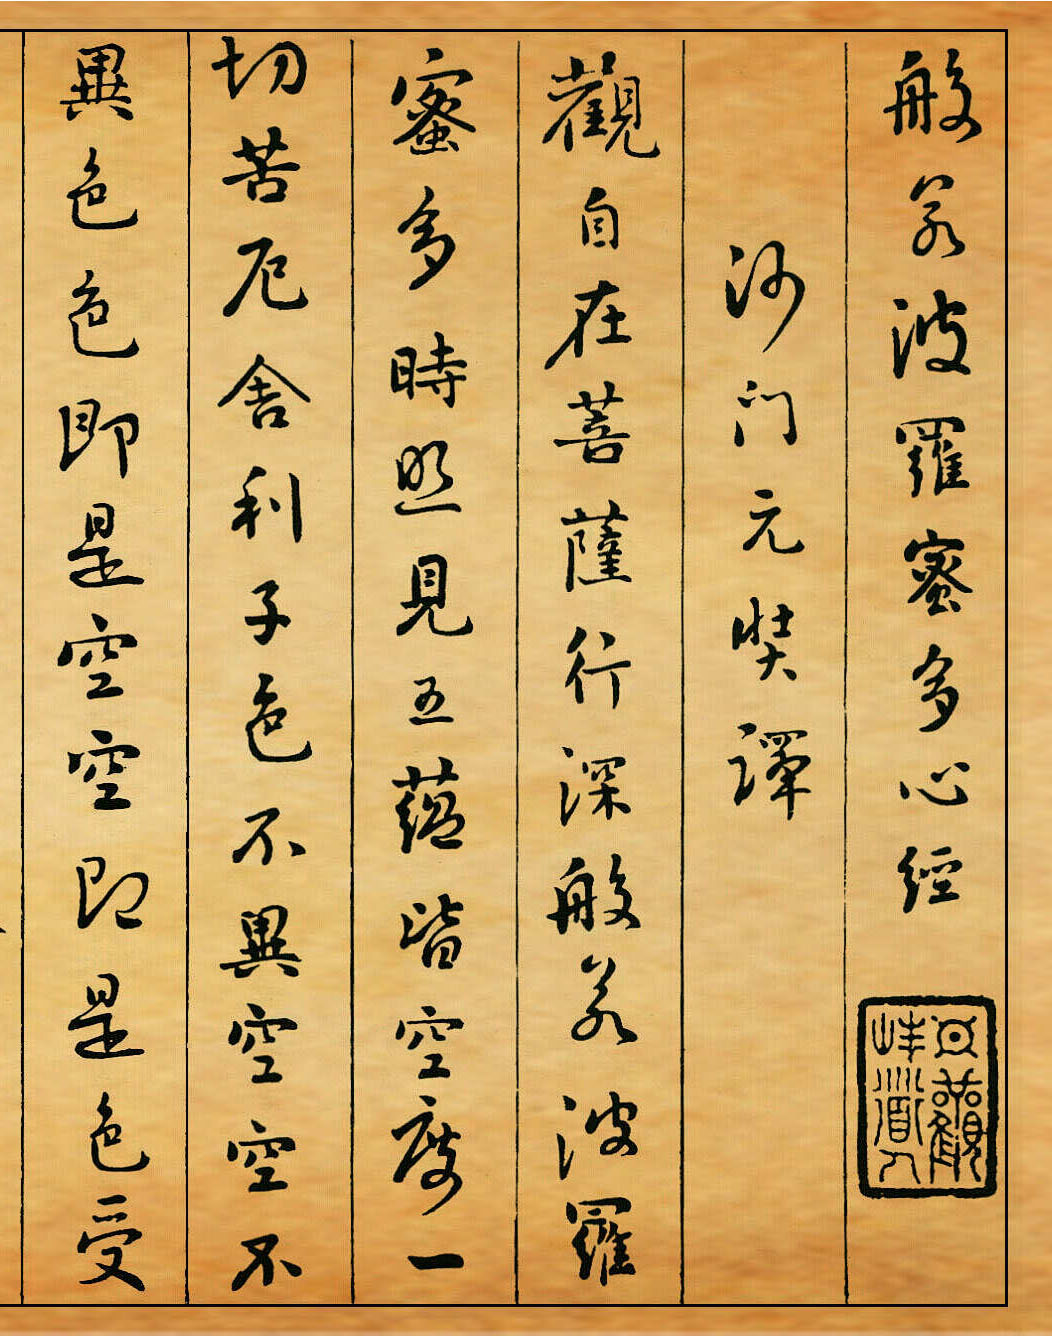 般若波羅蜜多心経
沙门元奘譯
觀自在菩薩行深般若波羅
蜜多時照見五蘊皆空度一
切苦厄舍利子色不異空空不
異色色即是空空即是色受